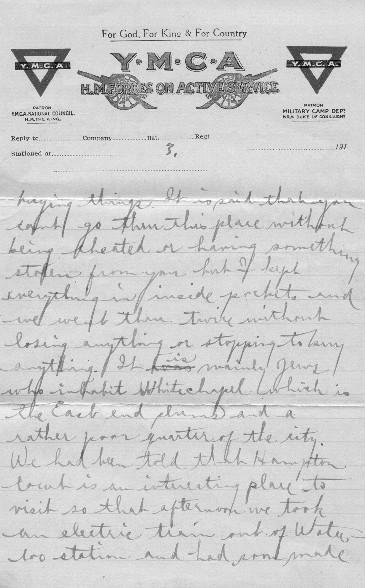 For God, For King & For Country
Y·M·C·A
H.M. FORCES ON ACTIVE SERVICE
Y.M.C.A.
Y.M.C.A.
PATRON
Y.M.C.A. NATIONAL COUNCIL.
H.M. THE KING.
PATRON
MILITARY CAMP DEPT
H.R.H. DUKE OF CONNAUGHT
Reply to Company Bat. Regt
Stationed at 191
3.
buying things. It is said that you
can't go thru this place without
being cheated or having something
stolen from you but I kept
everything in inside pockets and
we went thru twice without
losing anything or stopping to buy
anything. It is mainly Jews
who inhabit Whitechapel which is
the East end slums and a
rather poor quarter of the city.
We had been told that Hampton
Court is an interesting place to
visit so that afternoon we took
an electric train out of Water-
loo station and had soon made